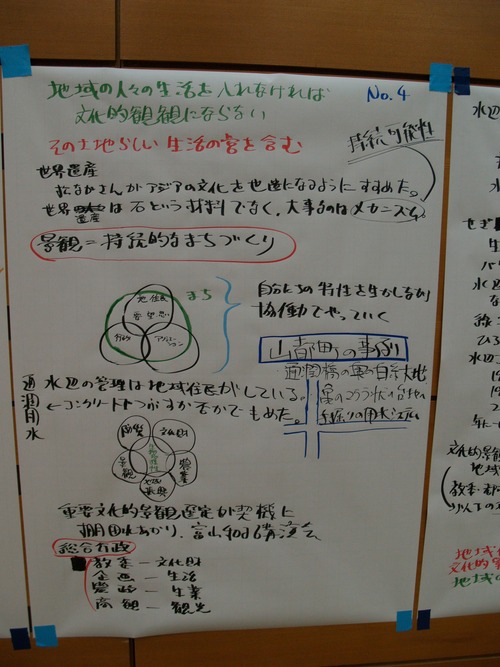 地域の人々の生活を入れなければ
No.4
文化的観観にならない
その土地らしい生活の営を含む
持続可能性
世界遺産
松なかさんがアジアの文化を世遺になるようにすすめた。
世界遺産は石という材料でなく、大事なのはメカニズム。
景観=持続的なまちづくり
まち
地住民
行政
自分たちの特性を生かしながら
協働でやっていく
山都町の事例
通潤橋の
白糸大地
水辺の管理は地域住民がしている。
通潤用水
←コンクリートでつぶすか否かでもめた。
手掘りの用水
文化財
景観
農業
地域振興
重要文化的景観選定が契機に
棚田にあかり、富山和子講演会
総合行政
教委-文化財
企画-生活
農政-生業
商観-観光
水辺
せぎ
水辺
文化的景観
地域
教委
以下の
地域
文化的景
地域の